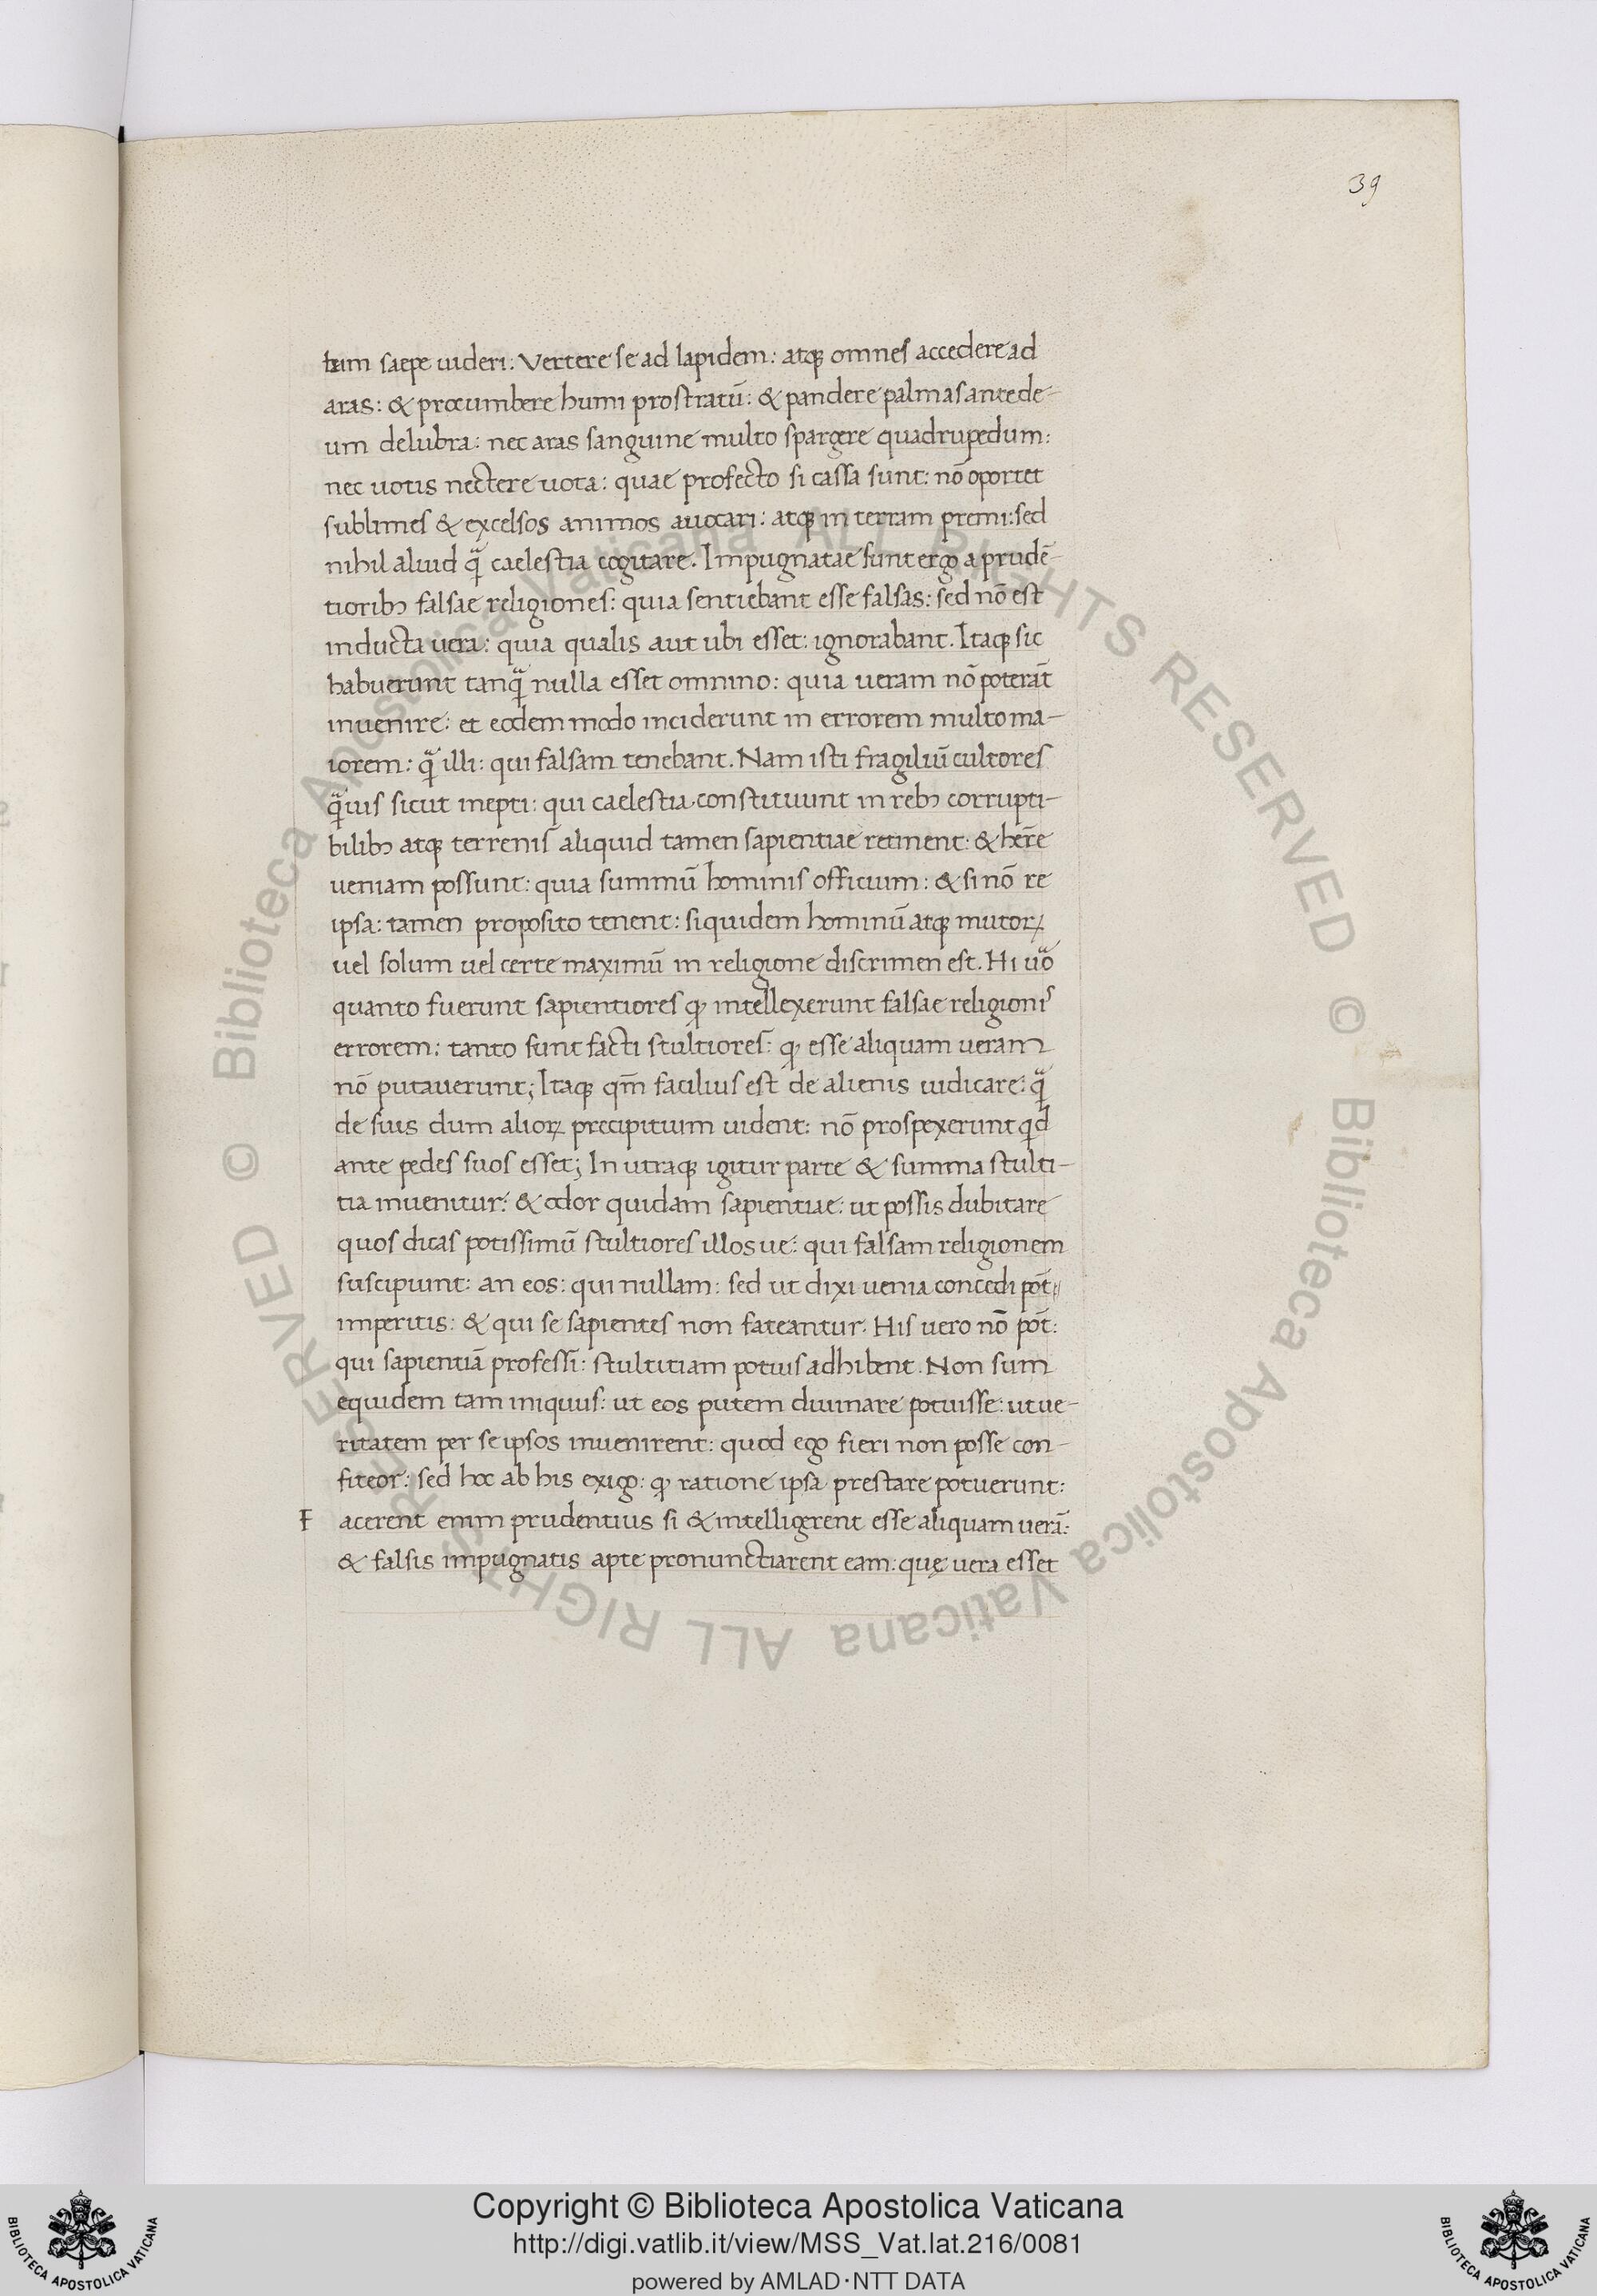 39
tum saepe uideri: vertere se ad lapidem: atqꝫ omnes accedere ad
aras: & procumbere humi prostratū: & pandere palmas ante de-
um delubra: nec aras sanguine multo spargere quadrupedum:
nec uotis nectere uota: quae profecto si cassa sunt: nō oportet
sublimes & excelsos animos auocari: atqꝫ in terram premi: sed
nihil aliud qͣ̄ caelestia cogitare. Impugnatae sunt ergo a prudē-
tioribꝰ falsae religiones: quia sentiebant esse falsas: sed nō est
inducta uera: quia qualis aut ubi esset: ignorabant. Itaqꝫ sic
habuerunt tanqͣ̄ nulla esset omnino: quia ueram nō poterāt
inuenire: et eodem modo inciderunt in errorem multo ma-
iorem: qͣ̄ illi: qui falsam tenebant. Nam isti fragiliū cultores
qͣ̄uis sicut inepti: qui caelestia constituunt in rebꝰ corrupti-
bilibꝰ atqꝫ terrenis aliquid tamen sapientiae retinent: & hēre
ueniam possunt: quia summū hominis officium: & si nō re
ipsa: tamen proposito tenent: siquidem hominū atqꝫ mutoꝝ
uel solum uel certe maximū in religione discrimen est. Hi uͦo
quanto fuerunt sapientiores ꝙ intellexerunt falsae religionis
errorem: tanto sunt facti stultiores: ꝙ esse aliquam veram
nō putauerunt; Itaqꝫ qm̄ facilius est de alienis iudicare: qͣ̄
de suis dum alioꝝ precipitium uident: nō prospexerunt qd
ante pedes suos esset; In utraqꝫ igitur parte & summa stulti-
tia inuenitur: & odor quidam sapientiae: ut possis dubitare
quos dicas potissimū stultiores illos ue: qui falsam religionem
suscipiunt: an eos: qui nullam: sed ut dixi uenia concedi pōt
imperitis: & qui se sapientes non fateantur. His uero nō pōt:
qui sapientiā professi: stultitiam potius adhibent. Non sum
equidem tam iniquus: ut eos putem diuinare potuisse: ut ue-
ritatem per se ipsos inuenirent: quod ego fieri non posse con-
fiteor: sed hoc ab his exigo: ꝙ ratione ipsa prestare potuerunt:
F acerent enim prudentius si & intelligerent esse aliquam uerā:
& falsis impugnatis apte pronunctiarent eam: quę vera esset
© Biblioteca Apostolica Vaticana ALL RIGHTS RESERVED © Biblioteca Apostolica Vaticana ALL RIGHTS RESERVED
Copyright © Biblioteca Apostolica Vaticana
http://digi.vatlib.it/view/MSS_Vat.lat.216/0081
powered by AMLAD·NTT DATA
BIBLIOTECA APOSTOLICA VATICANA
BIBLIOTECA APOSTOLICA VATICANA